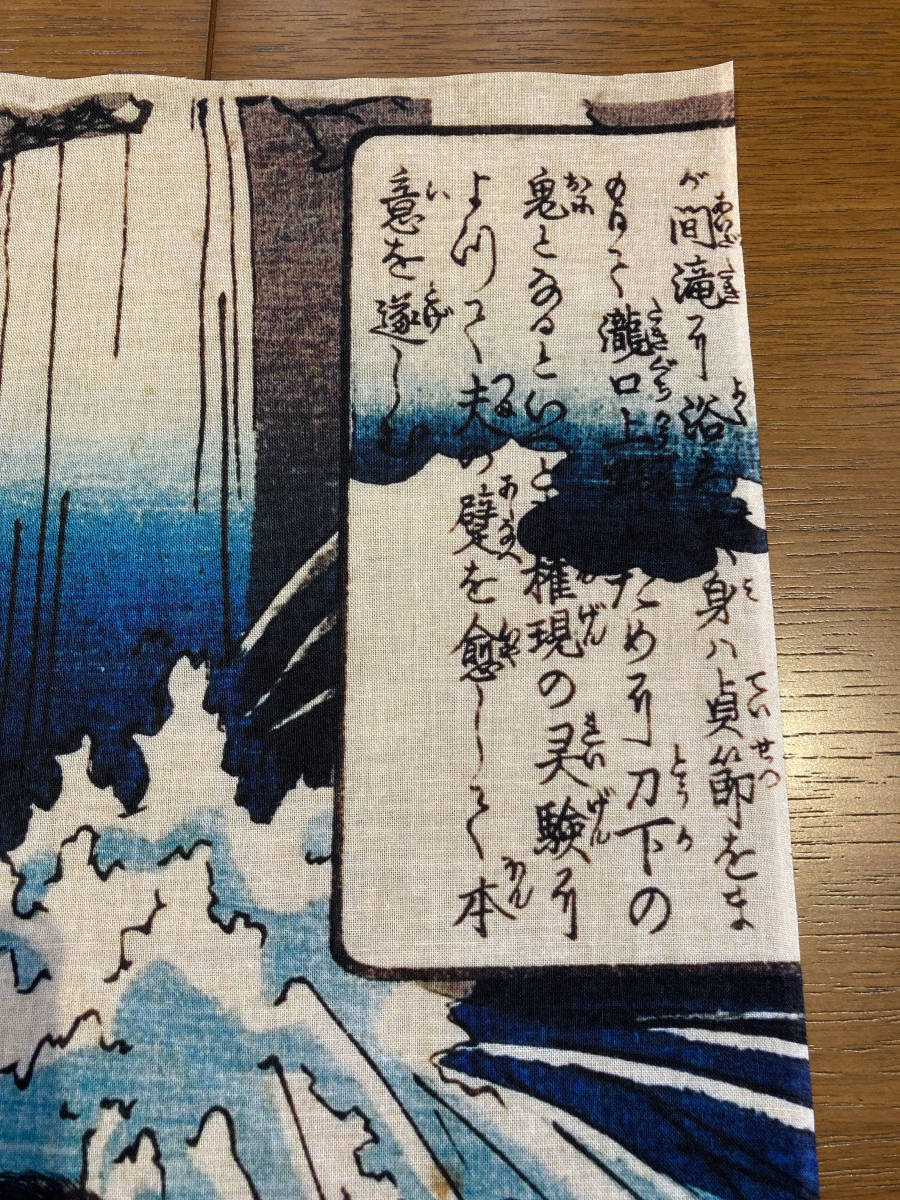 が間滝に浴 身ハ貞節をま
もりて瀧口上野 ために刀下の
鬼となるといへど 権現の灵験に
よつて夫の躄を愈して本
意を遂しむ